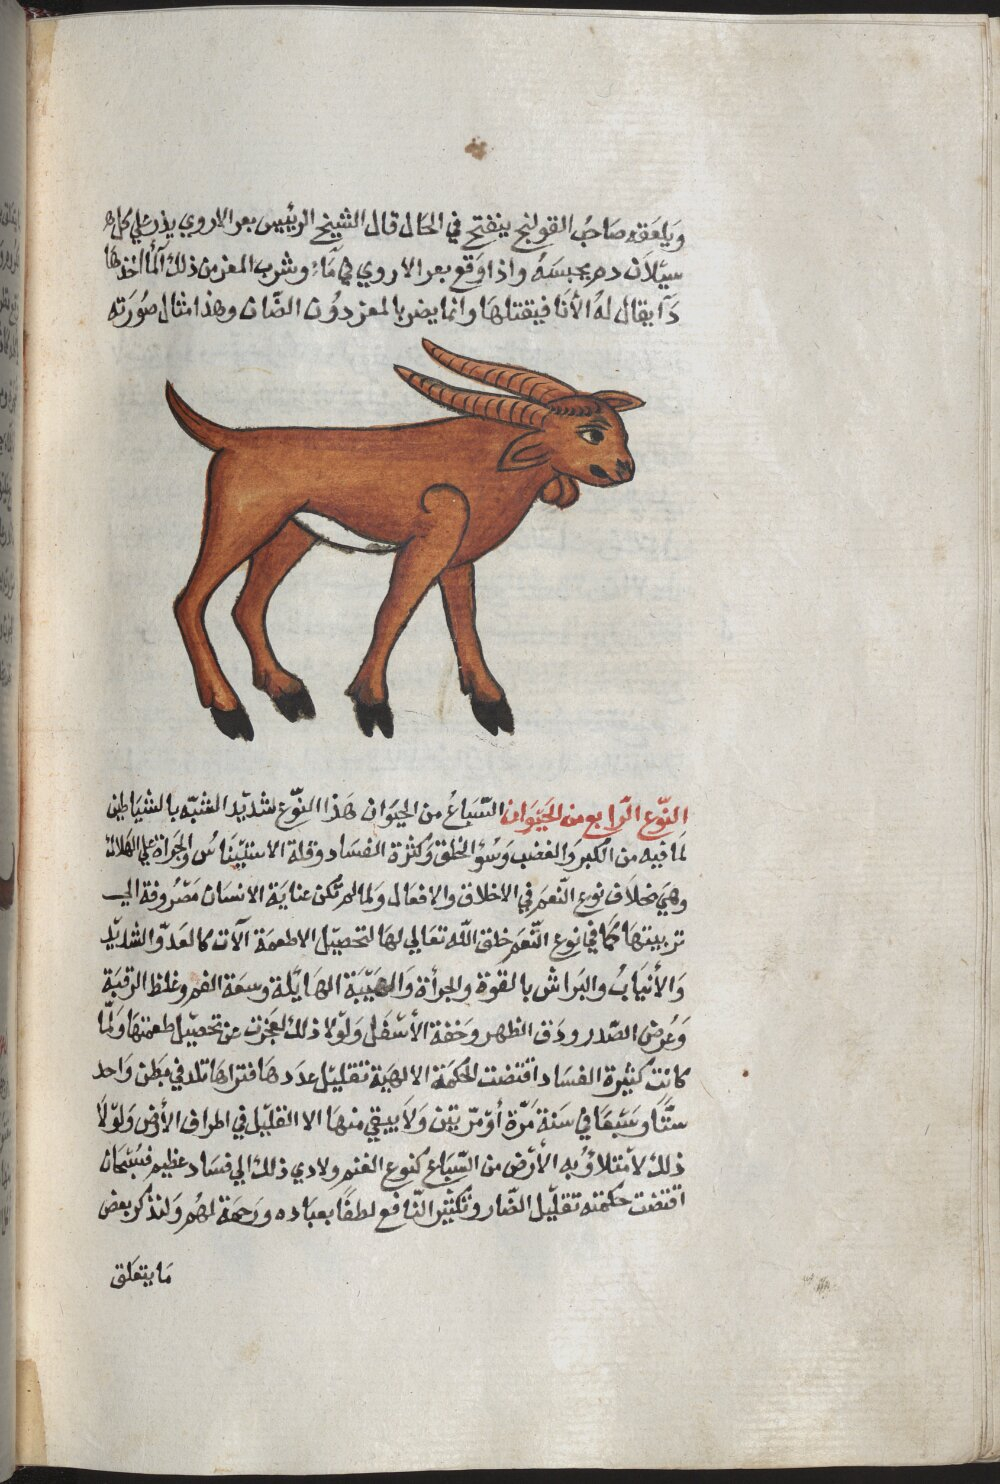 ويلعقه صَاحبُ القولنج ينفتح في الحَال قال الشيخ الرئيس بعر الاروي يذر علي كل
سيَلَان دم يحبسَهُ واذا وَقع بعر الاروي في مَآء وشرب المعز من ذلك المآ اخذها
دَآ يقال لهُ الأنا فيقتلهَا وانما يضر بالمعز دوُن الضان وهذا مثال صوُرَته
النوّع الرّابع من الحيَوَان السّبَاعُ من الحيَوَان هَذا النوّع شديد الشبّه بالشيَاطين
لما فيه من الكبر وَالغضب وَسُوُ الخلق وَكثرة الفسَاد وقلة الاستيناسُ والجرَاة علي الهَلاك
وهيَ بخلَاف نوع النّعَم في الاخلاق والافعَال وَلما لم تكن عنايَة الانسَان مصَروفة الي
تربيتهَا كَمَا في نوع النّعَم خلق الله تعَالي لهَا لتحصيل الاطعمَة آلات كالعَدو الشديد
وَالأنيَابُ والبَراثن بالقوة والجرأة وَالهَيبَة الهَايَلة وسعَة الفم وغلظ الرقبَة
وَعُرض الصّدر ودَق الظهر وَخفة الأسفَل وَلوْلا ذلك لعَجزت عن تحصيل طعمتهَا وَلمّا
كانتْ كثيرة الفسَاد اقتضت الحكمة الالهية تقليل عدَدهَا فتراهَا تلد في بَطن وَاحد
ستَّا وسَبعَا في سَنة مَرّة أوْ مرّتين وَلَا يبقي منهَا الا القليل في اطراف الأرض وَلوْلا
ذلك لامتلاؤُ به الأرْض من السّبَاع كنوع الغنم ولادي ذلك الي فسَاد عظيم فسُبحَان
اقتضت حكمته تقليل الضّار وتكثيْر النّافع لطفًا بعبَاده وَرحمَة لهم وَلنذكر بعض
مَا يتعَلق